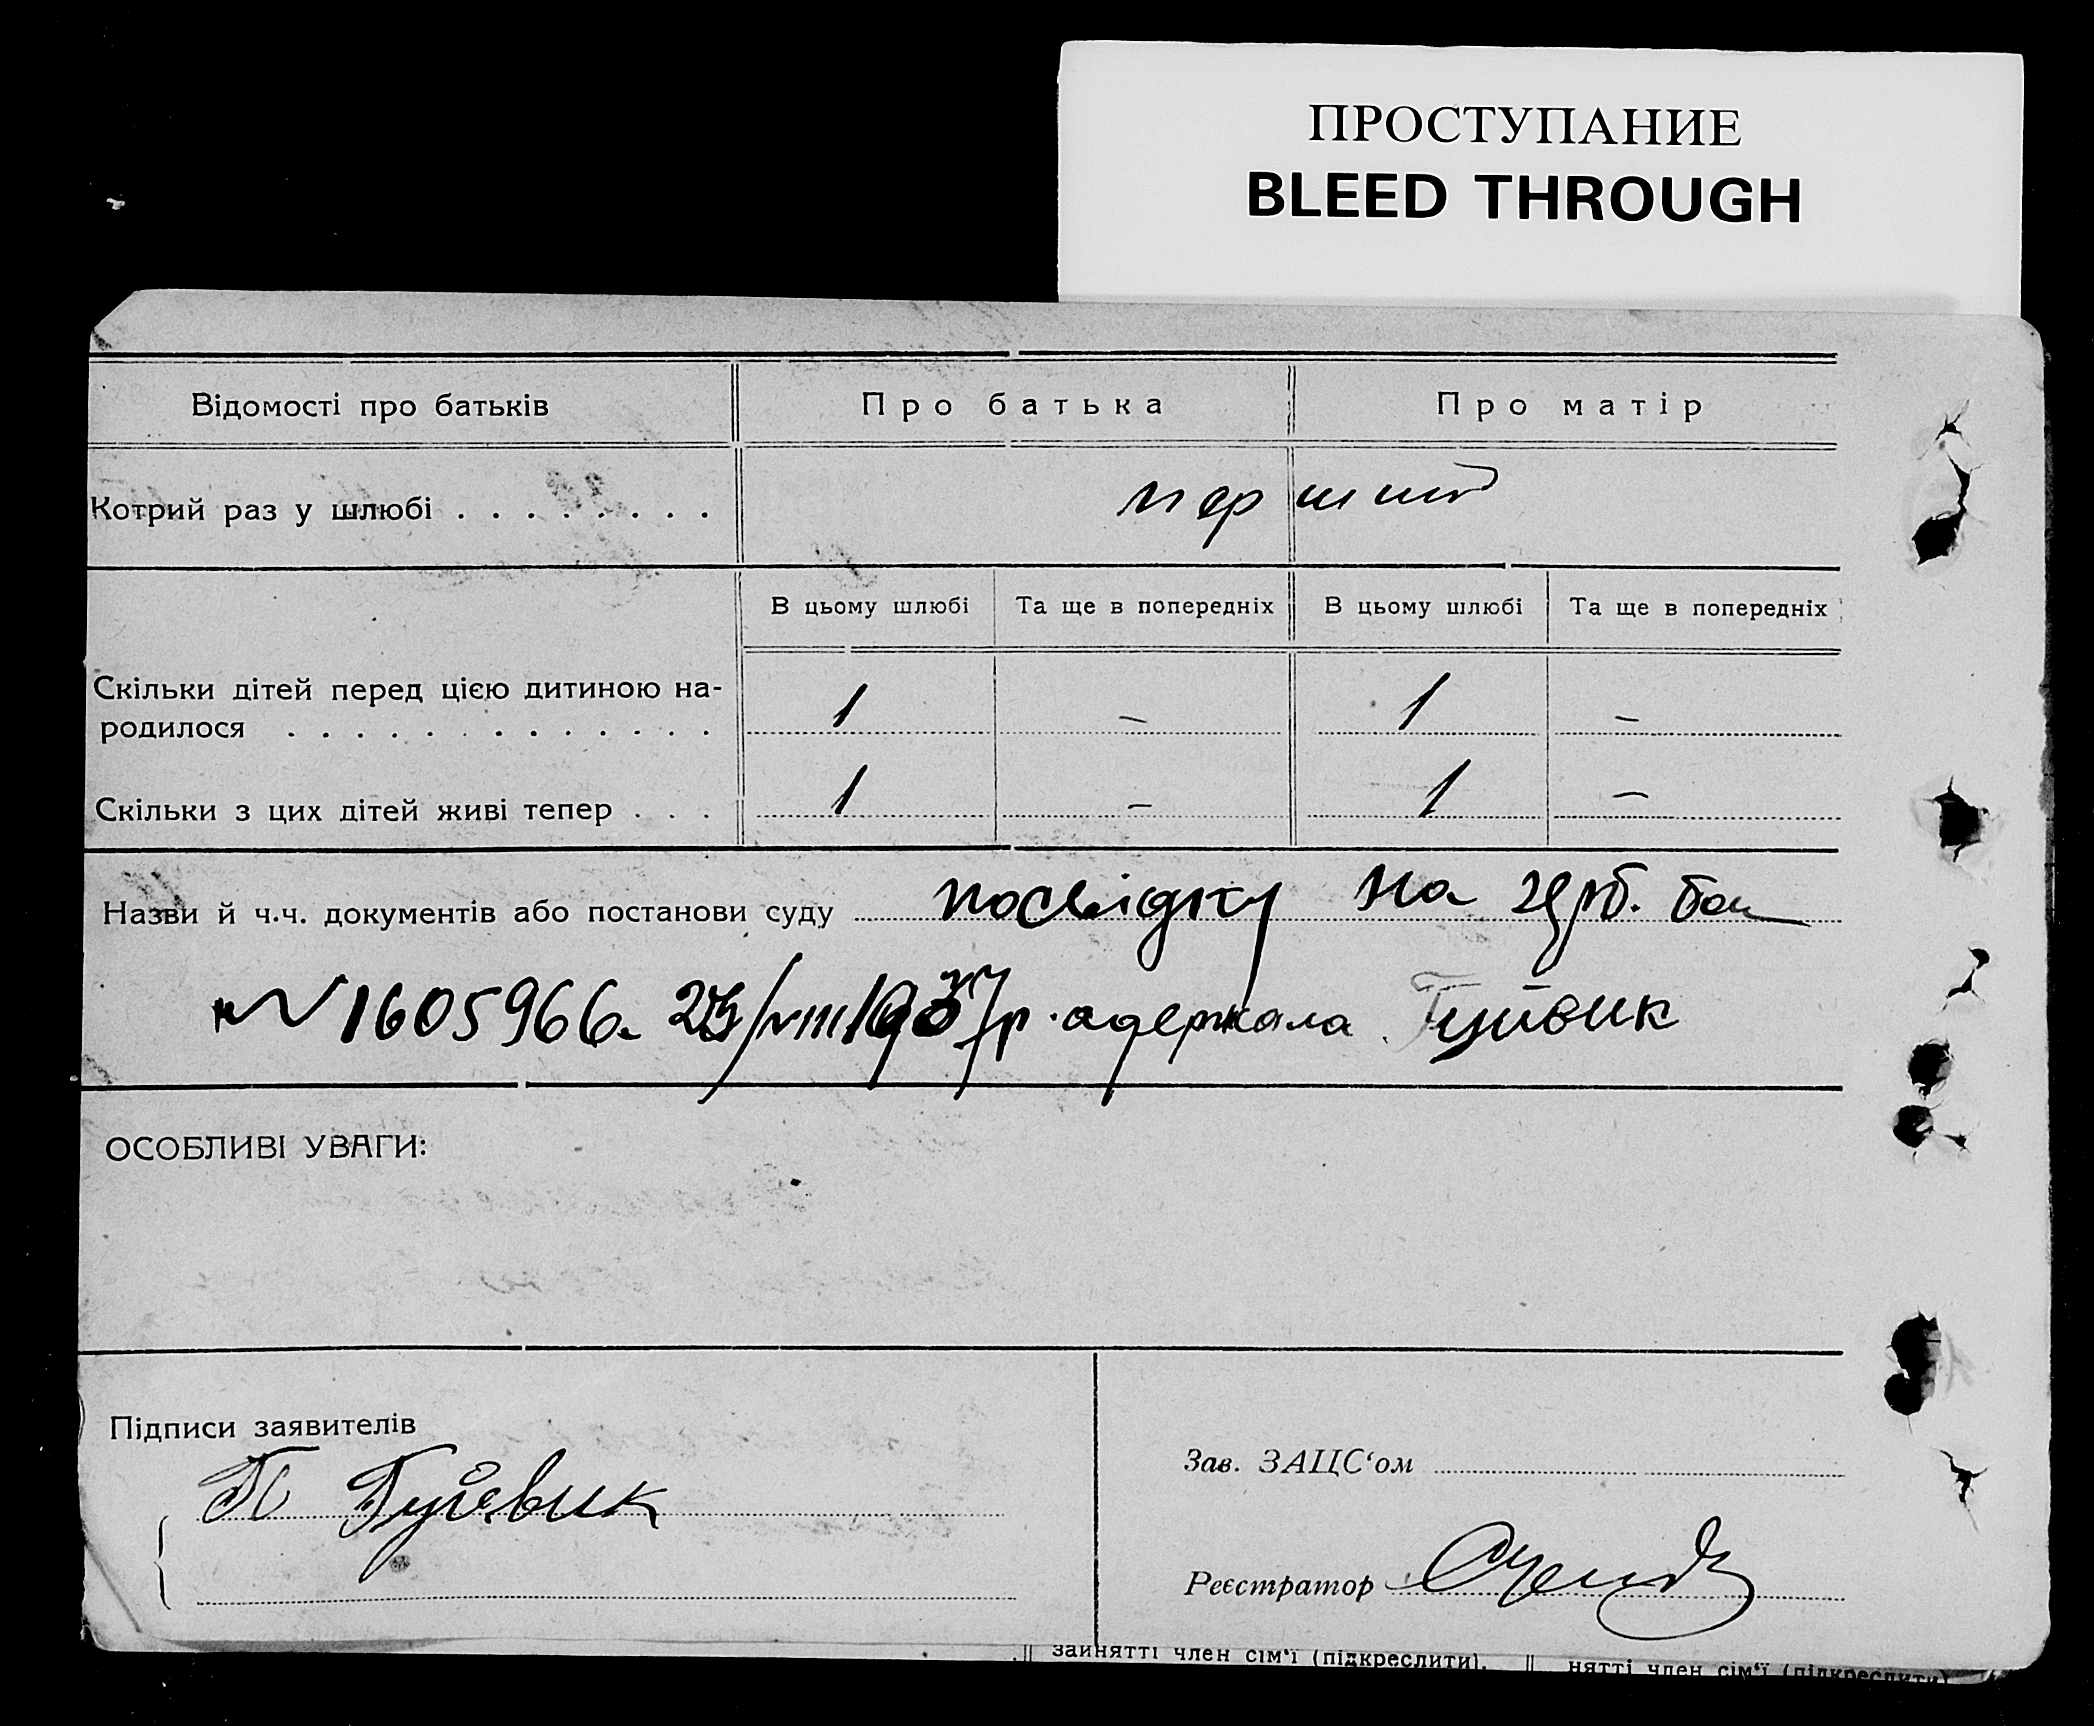 ПРОСТУПАНИЕ
BLEED THROUGH
Відомості про батьків Про батька Про матір
Котрий раз у шлюбі . . . . . . . . перший
В цьому шлюбі Та ще в попередніх В цьому шлюбі Та ще в попередніх
Скільки дітей перед цією дитиною на-
родилося . . . . . . . . . . . . . 1 – 1 –
Скільки з цих дітей живі тепер . . . 1 – 1 –
Назви й ч.ч. документів або постанови суду посвідку на
№ 1605966 /VIII 1937 р. одержала Гуйвик
ОСОБЛИВІ УВАГИ:
Підписи заявителів
П Гуйвик
Зав. ЗАЦС‘ом
Реєстратор
зайнятті член сім‘ї (підкреслити). нятті член сім‘ї (підкреслити)